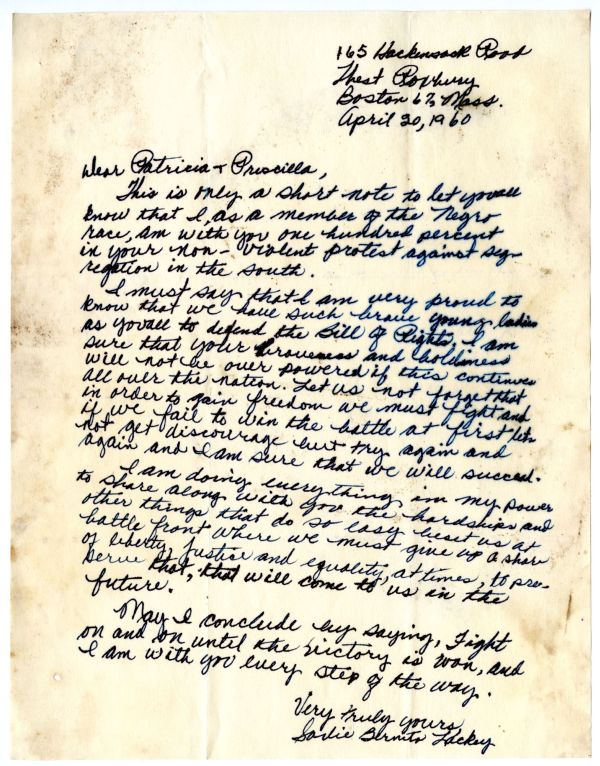 165 Hackensack Road
West Roxbury
Boston 67, Mass.
April 20, 1960
Dear Patricia + Priscilla,
This is only a short note to let you all
know that I, as a member of the Negro
race, am with you one hundred percent
in your non-violent protest against seg-
regation in the south.
I must say that I am very proud to
know that we have such brave young ladies
as you all to defend the Bill of Rights. I am
sure that your braveness and boldiness
will not be over powered if this continues
all over the nation. Let us not forget that
in order to gain freedom we must fight and
if we fail to win the battle at first let's
not get discourage but try again and
again and I am sure that we will succeed.
I am doing everything in my power
to share along with you the hardships and
other things that do so easy beset us at
battle front where we must give up a share
of liberty, justice and equality, at times, to pre-
serve that, that will come to us in the
future.
May I conclude by saying, Fight
on and on until the victory is won, and
I am with you every step of the way.
Very truly yours
Sadie Lackey